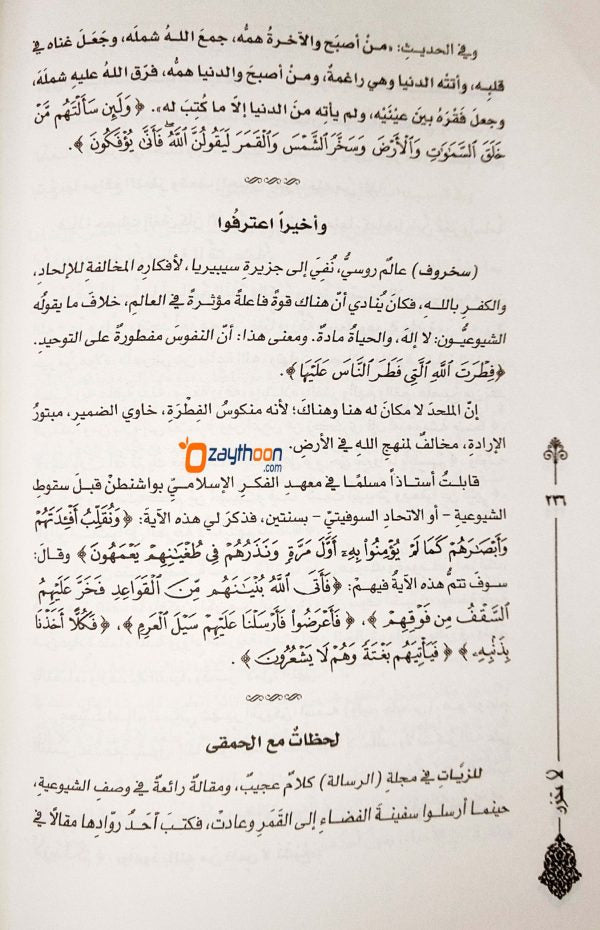 وفي الحديثِ: «منْ أصبَح والآخرةُ همُّه، جمعَ اللهُ شملَه، وجَعَلَ غناه في
قلبِه، وأتتْه الدنيا وهي راغمةٌ، ومنْ أصبحَ والدنيا همُّه، فرّق اللهُ عليهِ شملَهَ،
وجعلَ فَقْرَهُ بينَ عيْنَيْه، ولم يأتِه منَ الدنيا إلاَّ ما كُتِبَ له». ﴿ وَلَئِن سَأَلْتَهُم مَّنْ
خَلَقَ السَّمَاوَاتِ وَالْأَرْضَ وَسَخَّرَ الشَّمْسَ وَالْقَمَرَ لَيَقُولُنَّ اللَّهُ فَأَنَّى يُؤْفَكُونَ ﴾.
وأخيراً اعترفُوا
(سخروف) عالمٌ روسيٌّ، نُفِيَ إلى جزيرةِ سيبيريا، لأفكارِه المخالفةِ للإلحادِ،
والكفرِ باللهِ، فكانَ يُنادي أنَّ هناك قوةً فاعلةً مؤثرةً في العالمِ، خلافَ ما يقولُه
الشيوعيُّون: لا إلهَ، والحياةُ مادةٌ. ومعنى هذا: أنَّ النفوسَ مفطورةٌ على التوحيدِ.
﴿فِطْرَتَ اللَّهِ الَّتِي فَطَرَ النَّاسَ عَلَيْهَا ﴾.
إنَّ الملحدَ لا مكانَ له هنا وهناكَ؛ لأنه منكوسُ الفِطْرَةِ، خاوي الضميرِ، مبتورُ
الإرادةِ، مخالفٌ لمنهجِ اللهِ في الأرضِ.
Ozaythoon
.com
قابلتُ أستاذاً مسلمًا في معهدِ الفكرِ الإسلاميِّ بواشنطنَ قبلَ سقوطِ
الشيوعيةِ – أو الاتحادِ السوفيتيِّ – بسنتين، فذكرَ لي هذه الآيةَ: ﴿وَنُقَلِّبُ أَفْئِدَتَهُمْ
وَأَبْصَارَهُمْ كَمَا لَمْ يُؤْمِنُوا بِهِ أَوَّلَ مَرَّةٍ وَنَذَرُهُمْ فِي طُغْيَانِهِمْ يَعْمَهُونَ﴾ وقال:
سوف تتمُّ هذه الآيةُ فيهمْ: ﴿فَأَتَى اللَّهُ بُنْيَانَهُم مِّنَ الْقَوَاعِدِ فَخَرَّ عَلَيْهِمُ
السَّقْفُ مِن فَوْقِهِمْ ﴾، ﴿ فَأَعْرَضُوا فَأَرْسَلْنَا عَلَيْهِمْ سَيْلَ الْعَرِمِ ﴾، ﴿ فَكُلًّا أَخَذْنَا
بِذَنبِهِ ﴾ ﴿ فَيَأْتِيَهُم بَغْتَةً وَهُمْ لَا يَشْعُرُونَ ﴾.
لحظاتٌ مع الحمقى
للزيَّاتِ في مجلةِ (الرسالة) كلامٌ عجيبٌ، ومقالةٌ رائعةٌ في وصفِ الشيوعيةِ،
حينما أرسلُوا سفينةَ الفضاءِ إلى القَمَرِ وعادتْ، فكتبَ أحدُ روادِها مقالاً في
٢٣٦
لا تحزن